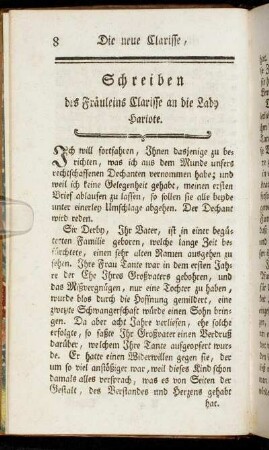 8 Die neue Clarisse,
Schreiben
des Fräuleins Clarisse an die Lady
Hariote.
Ich will fortfahren, Ihnen dasjenige zu be-
richten, was ich aus dem Munde unsers
rechtschaffenen Dechanten vernommen habe; und
weil ich keine Gelegenheit gehabt, meinen ersten
Brief ablaufen zu lassen, so sollen sie alle beyde
unter einerley Umschlage abgehen. Der Dechant
wird reden.
Sir Derby, Ihr Vater, ist in einer begü-
terten Familie geboren, welche lange Zeit be-
fürchtete, einen sehr alten Namen ausgehen zu
sehen. Ihre Frau Tante war in dem ersten Jah-
re der Ehe Ihres Großvaters gebohren, und
das Mißvergnügen, nur eine Tochter zu haben,
wurde blos durch die Hoffnung gemildert, eine
zwote Schwangerschaft würde einen Sohn brin-
gen. Da aber acht Jahre verliefen, ehe solche
erfolgte, so faßte Ihr Großvater einen Verdruß
darüber, welchem Ihre Tante aufgeopfert wur-
de. Er hatte einen Widerwillen gegen sie, der
um so viel anstößiger war, weil dieses Kind schon
damals alles versprach, was es von Seiten der
Gestalt, des Verstandes und Herzens gehabt
hat.